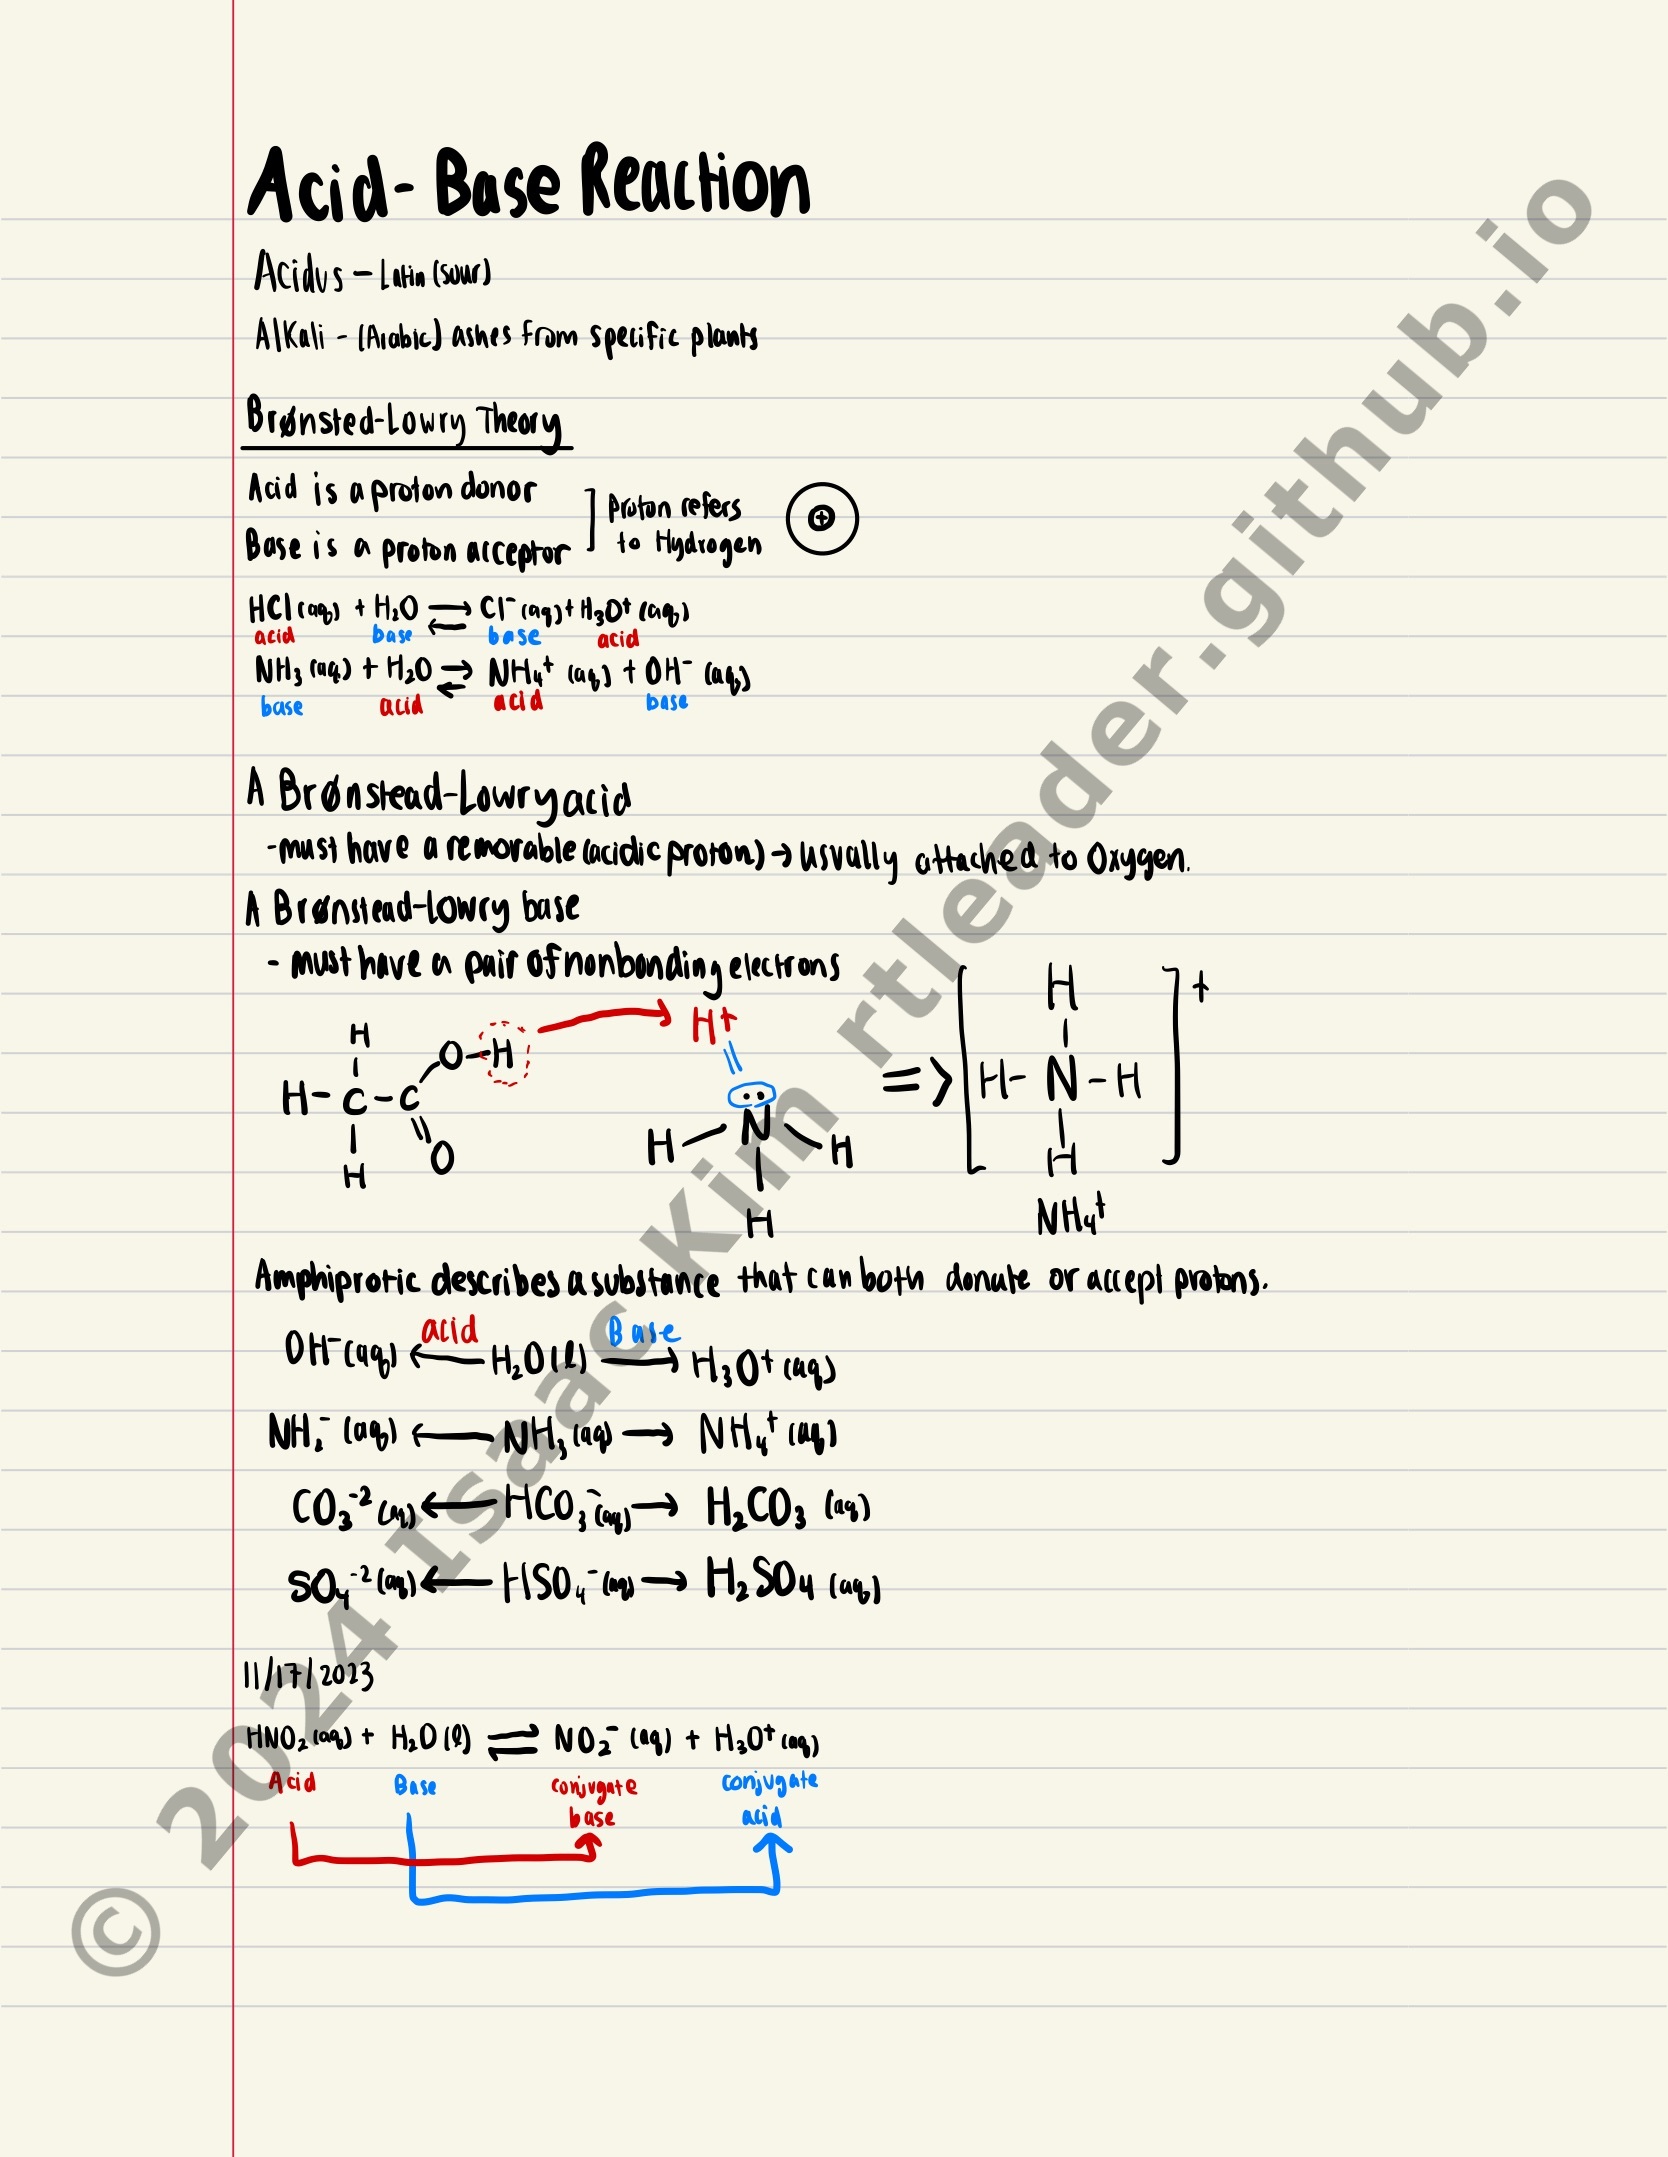 Acid-Base Reaction
Acidus - Latin (sour)
Alkali - (Arabic) ashes from specific plants
Brønsted-Lowry Theory
Acid is a proton donor
Base is a proton acceptor
] Proton refers
to Hydrogen
⊕
HCl (aq) + H₂O ⇌ Cl⁻ (aq) + H₃O⁺ (aq)
acid base base acid
NH₃ (aq) + H₂O ⇌ NH₄⁺ (aq) + OH⁻ (aq)
base acid acid base
A Brønstead-Lowry acid
-must have a removable (acidic proton) → usually attached to Oxygen.
A Brønstead-Lowry base
- must have a pair of nonbonding electrons
H
O-H
H-C-C
H
O
H⁺
··
N
H H
H
=>
[ H
H-N-H
H ]⁺
NH₄⁺
Amphiprotic describes a substance that can both donate or accept protons.
acid Base
OH⁻(aq) ← H₂O(l) → H₃O⁺ (aq)
NH₂⁻ (aq) ← NH₃ (aq) → NH₄⁺ (aq)
CO₃⁻² (aq) ← HCO₃⁻ (aq) → H₂CO₃ (aq)
SO₄⁻² (aq) ← HSO₄⁻ (aq) → H₂SO₄ (aq)
11/17/2023
HNO₂ (aq) + H₂O (l) ⇌ NO₂⁻ (aq) + H₃O⁺ (aq)
Acid Base conjugate conjugate
base acid
© 2024 Isaac Kim rtleader.github.io